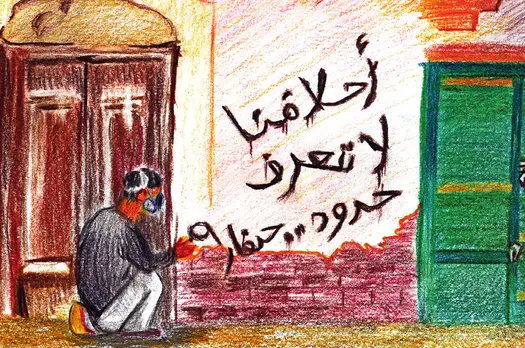 أحلامنا
لا تعرف
حدود..